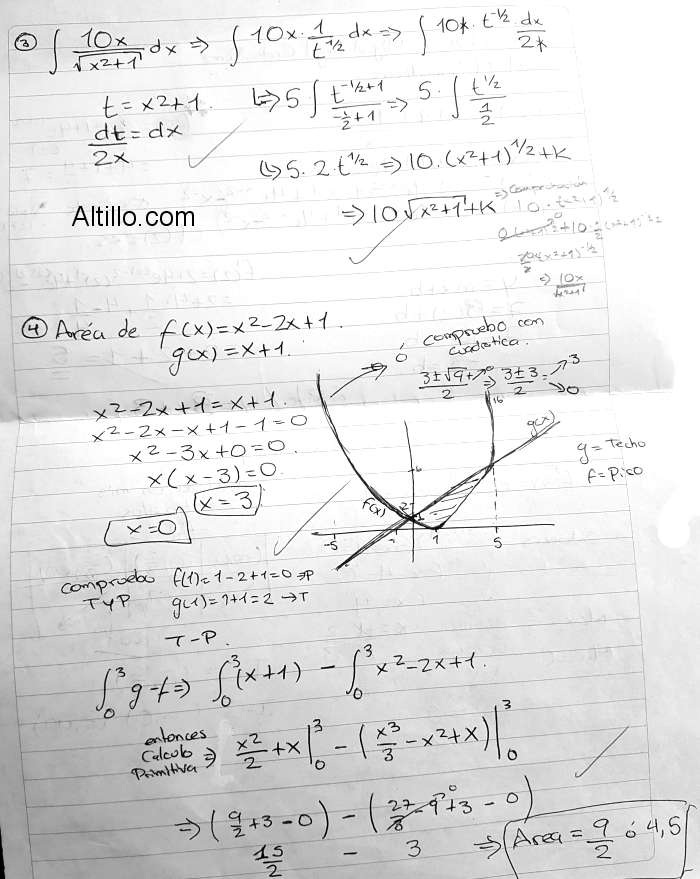 ③ ∫ 10x/√(x²+1) dx ⇒ ∫ 10x · 1/t^(1/2) dx ⇒ ∫ 10x · t^(-1/2) dx/2x
t = x²+1. ↳⇒ 5 ∫ t^(-1/2+1)/(-1/2+1) ⇒ 5 · ∫ t^(1/2)/(1/2)
dt/2x = dx
↳⇒ 5 · 2 · t^(1/2) ⇒ 10 · (x²+1)^(1/2) + K
Altillo.com
⇒ 10 √(x²+1) + K
⇒ Comprobación
10 · (x²+1)^(1/2)
⇒ 10x/√(x²+1)
④ Area de f(x) = x²-2x+1.
g(x) = x+1.
⇒ ó compruebo con
cuadratica.
x²-2x+1 = x+1.
x²-2x-x+1-1=0
x²-3x+0=0.
x(x-3)=0.
x=3
x=0
(3±√(9+0))/2 ⇒ (3±3)/2 = 3
0
16
g(x)
6
f(x)
2
1
-5 -1 1 5
g = Techo
f = Piso
compruebo f(1)=1-2+1=0 ⇒P
TyP g(1)=1+1=2 →T
T-P.
∫₀³ g-f ⇒ ∫₀³ (x+1) - ∫₀³ x²-2x+1.
entonces
Calculo
Primitiva ⇒ x²/2 + x |₀³ - (x³/3 - x² + x) |₀³
⇒ (9/2 + 3 - 0) - (27/3 - 9 + 3 - 0)
15/2 - 3 ⇒ Area = 9/2 ó 4,5